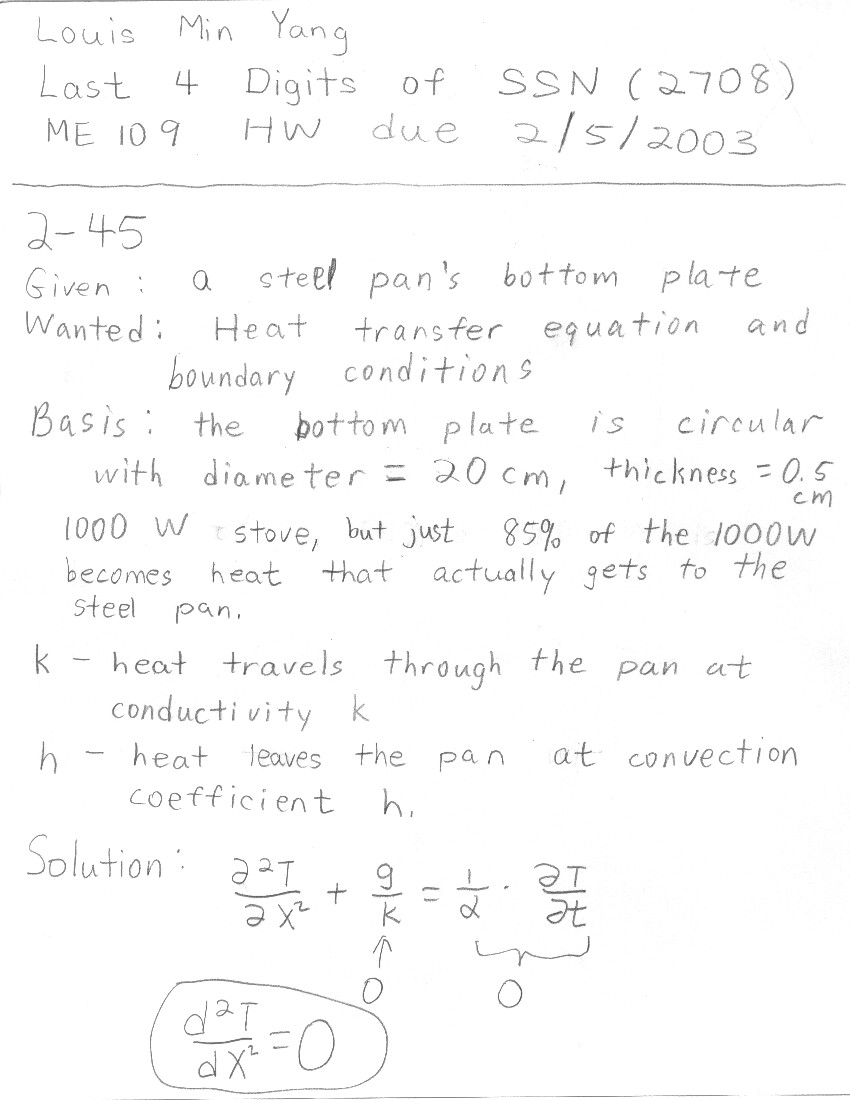 Louis Min Yang
Last 4 Digits of SSN (2708)
ME 109 HW due 2/5/2003
2-45
Given: a steel pan's bottom plate
Wanted: Heat transfer equation and
boundary conditions
Basis: the bottom plate is circular
with diameter = 20 cm, thickness = 0.5
cm
1000 W stove, but just 85% of the 1000W
becomes heat that actually gets to the
steel pan.
k - heat travels through the pan at
conductivity k
h - heat leaves the pan at convection
coefficient h.
Solution: ∂²T/∂X² + g/k = 1/α · ∂T/∂t
↑
0 0
d²T/dX² = 0